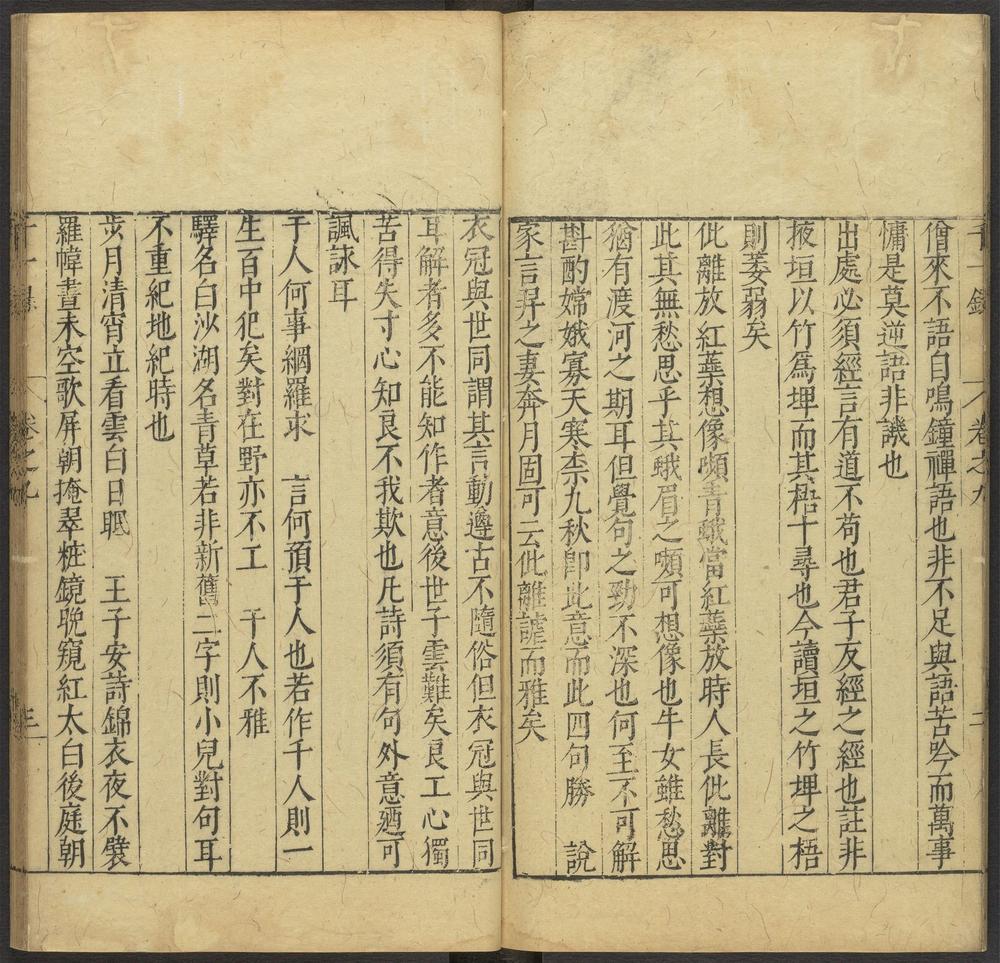 千一錄 卷之九 二
僧來不語自鳴鐘禪語也非不足與語苦吟而萬事
慵是莫逆語非譏也
出處必須經言有道不苟也君子反經之經也註非
掖垣以竹爲埤而其梧十尋也今讀垣之竹埤之梧
則萎弱矣
仳離放紅蘂想像嚬青蛾當紅蘂放時人長仳離對
此其無愁思乎其蛾眉之嚬可想像也牛女雖愁思
猶有渡河之期耳但覺句之勁不深也何至不可解
斟酌嫦娥寡天寒柰九秋卽此意而此四句勝 說
家言羿之妻奔月固可云仳離謔而雅矣
衣冠與世同謂其言動遵古不隨俗但衣冠與世同
耳解者多不能知作者意後世子雲難矣良工心獨
苦得失寸心知良不我欺也凡詩須有句外意廼可
諷詠耳
于人何事網羅求 言何預于人也若作千人則一
生百中犯矣對在野亦不工 干人不雅
驛名白沙湖名青草若非新舊二字則小兒對句耳
不重紀地紀時也
步月清宵立看雲白日眠 王子安詩錦衣夜不襞
羅幃晝未空歌屏朝掩翠粧鏡晚窺紅太白後庭朝
卷之九 三